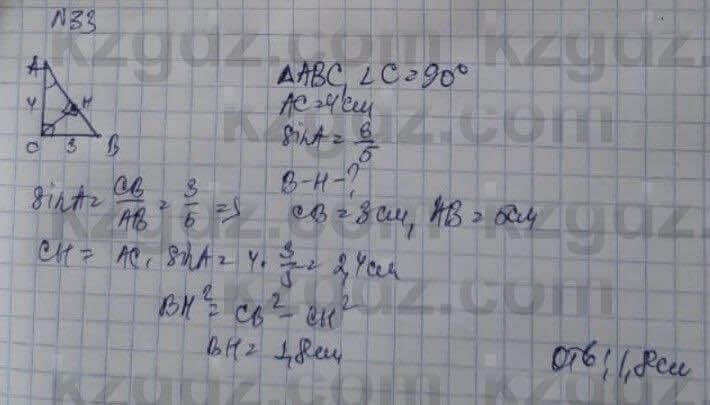 N33
A
4
H
C 3 B
ΔABC, ∠C=90°
AC=4см
sinA = 3/5
B-H-?
sinA = CB/AB = 3/5 =>
CB = 3см, AB = 5см
CH = AC · sinA = 4 · 3/5 = 2,4см
BH² = CB² - CH²
BH = 1,8см
Отв: 1,8см
kzgdz.com
kzgdz.com
kzgdz.com
kzgdz.com
kzgdz.com